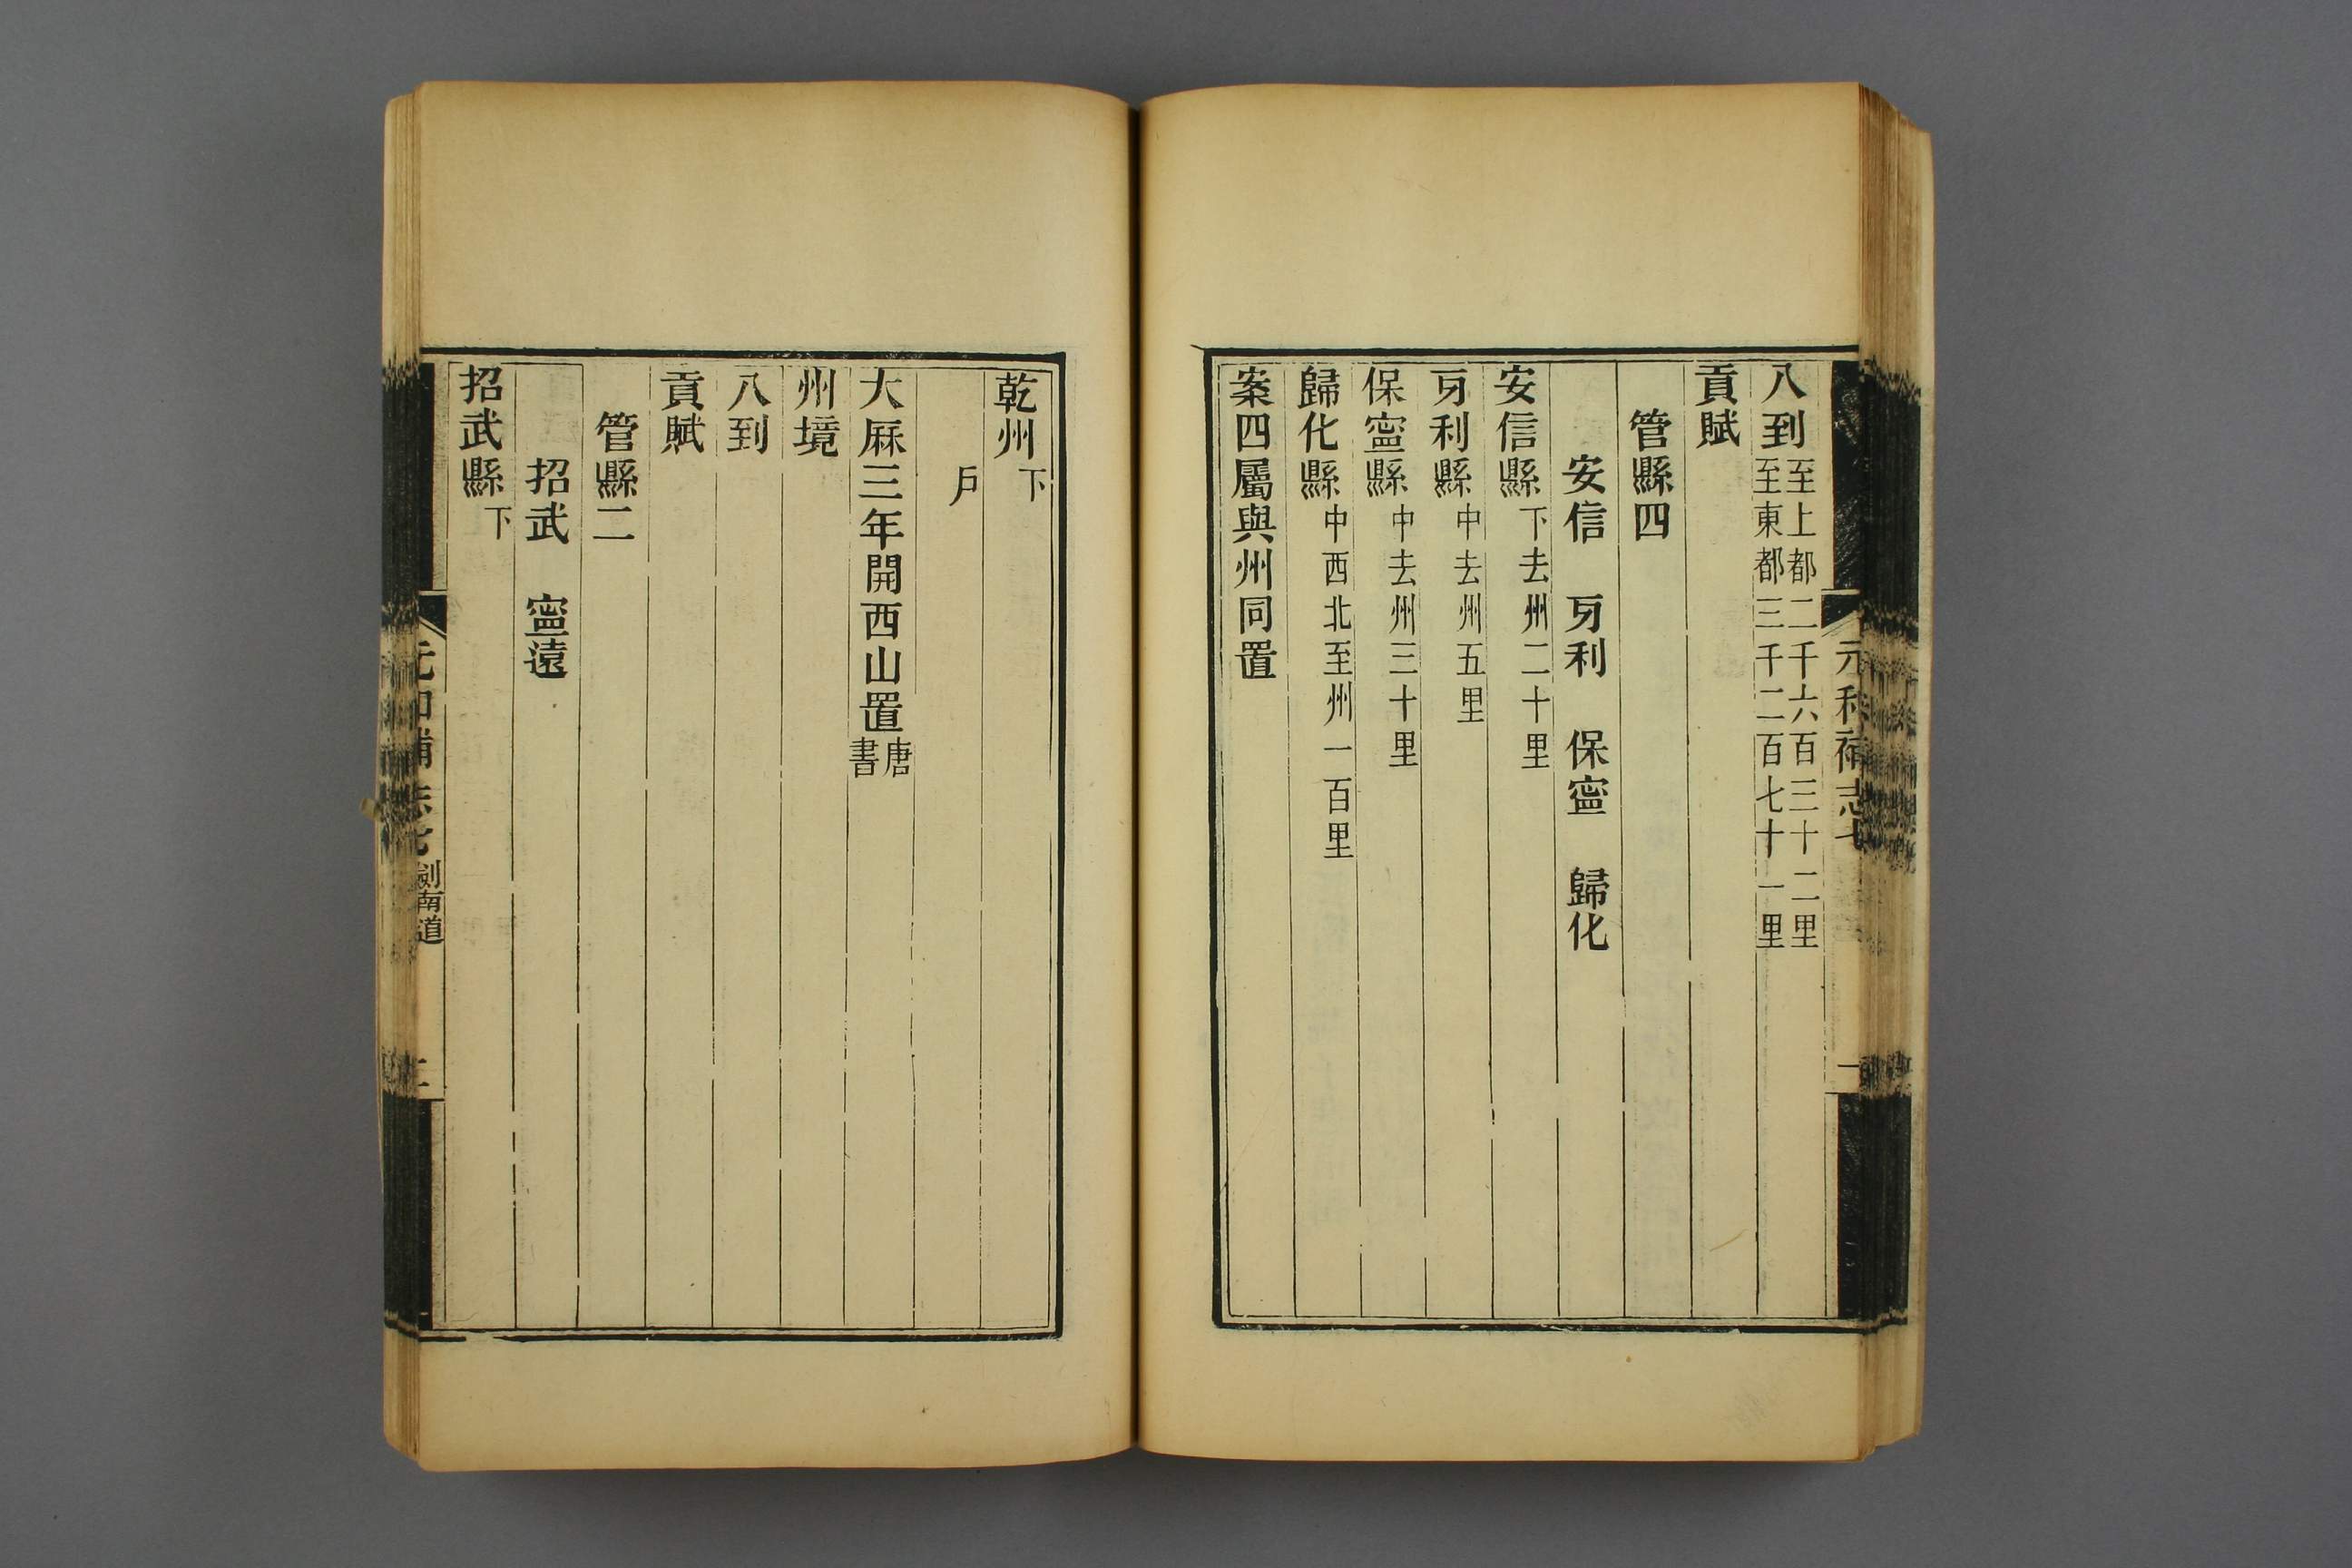 元和補志七
八到至上都二千六百三十二里至東都三千二百七十一里
貢賦
管縣四
安信　牙利　保寧　歸化
安信縣下去州二十里
牙利縣中去州五里
保寧縣中去州三十里
歸化縣中西北至州一百里
案四屬與州同置
乾州下
戶
大厤三年開西山置唐書
州境
八到
貢賦
管縣二
招武　寧遠
招武縣下
元和補志七 劍南道 二